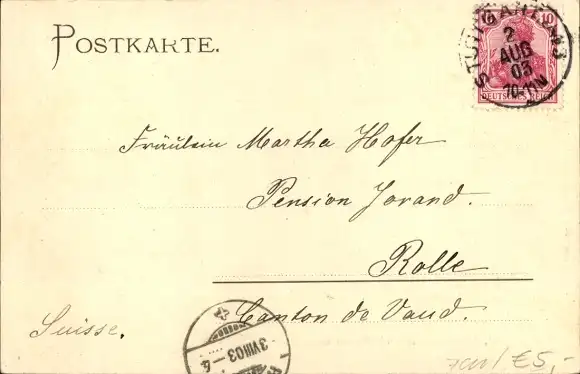 POSTKARTE.
10
STUTTGART No 3
2
AUG
03
10-11N
DEUTSCHES REICH
Fräulein Martha Hofer
Pension Jorand.
Rolle
Canton de Vaud.
Suisse.
3 VIII 03 - 4
€5,-